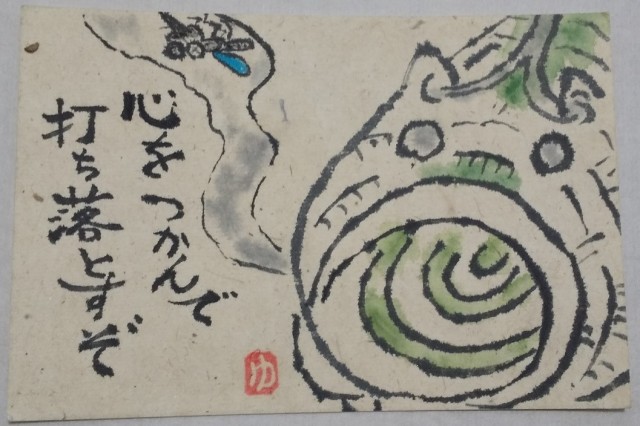 心をつかんで
打ち落とすぞ
ゆ